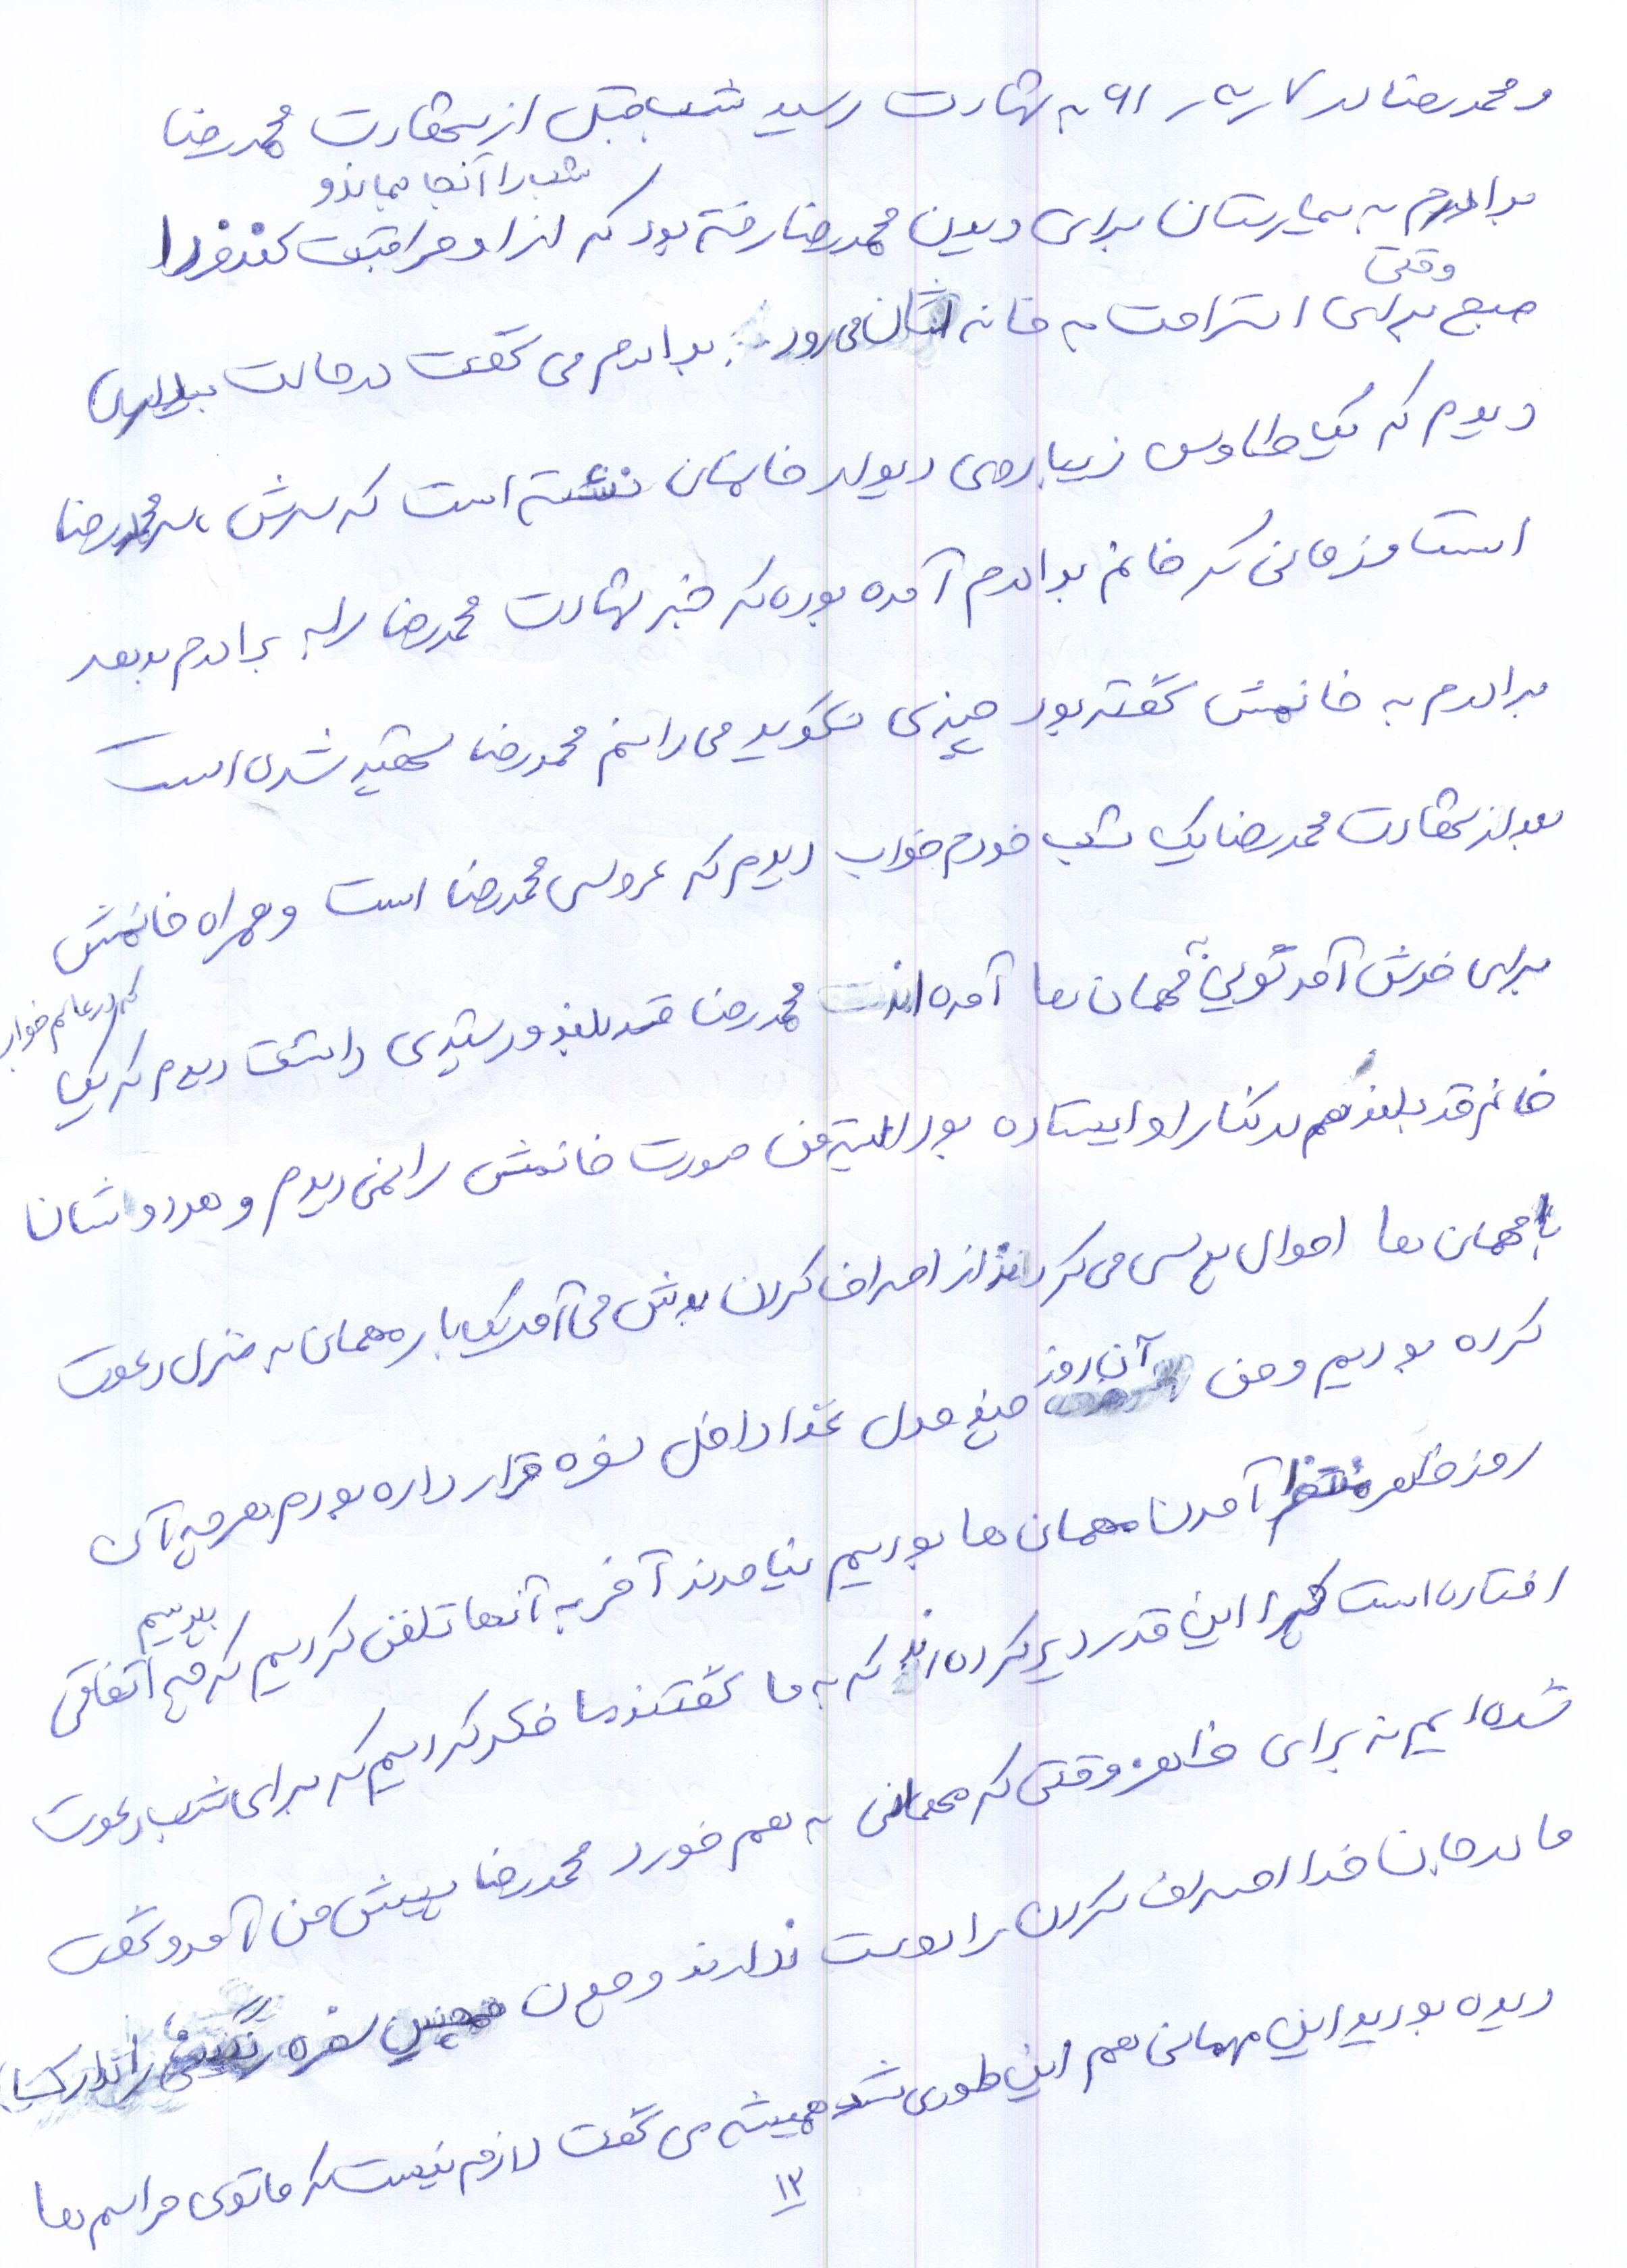 و محمدرضا در ۷ ر ۳ ر ۹۱ به شهادت رسید شب قبل از شهادت محمدرضا
شب را آنجا بماند و
برادرم به بیمارستان برای دیدن محمدرضا رفته بود که از او مراقبت کند فردا
وقتی
صبح برای استراحت به خانه اشان می‌رود برادرم می گفت در حالت بیداری
دیدم که یک طاوس زیبا روی دیوار خانمان نشسته است که سرش ، سر محمدرضا
است و زمانی که خانم برادرم آمده بوده که خبر شهادت محمدرضا را به برادرم بدهد
برادرم به خانمش گفته بود چیزی نگوید می دانم محمدرضا شهید شده است
بعد از شهادت محمدرضا یک شب خودم خواب دیدم که عروسی محمدرضا است و همراه خانمش
برای خوش آمد گویی مهمان ها آمده اند محمدرضا قد بلند و رشیدی داشت دیدم که یک
که در عالم خواب
خانم قد بلند هم در کنار او ایستاده بود البته من صورت خانمش را نمی دیدم و هر دو اشان
با مهمان ها احوال پرسی می کردند از اصراف کردن بدش می آمد یک بار مهمان به منزل دعوت
کرده بودیم و من آن روز چند مدل غذا داخل سفره قرار داده بودم هر چه آن
روز ظهر منتظر آمدن مهمان ها بودیم نیامدند آخر به آنها تلفن کردیم که چه اتفاقی
بپرسیم
افتاده است چرا این قدر دیر کرده اند که به ما گفتند ما فکر کردیم که برای شب دعوت
شده ایم نه برای ظهر وقتی که مهمانی به هم خورد محمدرضا پیش من آمد و گفت
مادر جان خدا اصراف کردن را دوست ندارند و چون همچین سفره رنگینی را تدارک
دیده بودید این مهمانی هم این طوری شد همیشه می گفت لازم نیست که ما توی مراسم ها
۱۳